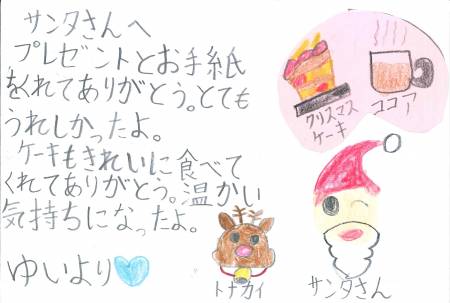 サンタさんへ
プレゼントとお手紙
をくれてありがとう。とても
うれしかったよ。
ケーキもきれいに食べて
くれてありがとう。温かい
気持ちになったよ。
ゆいより
クリスマス
ケーキ
ココア
トナカイ
サンタさん